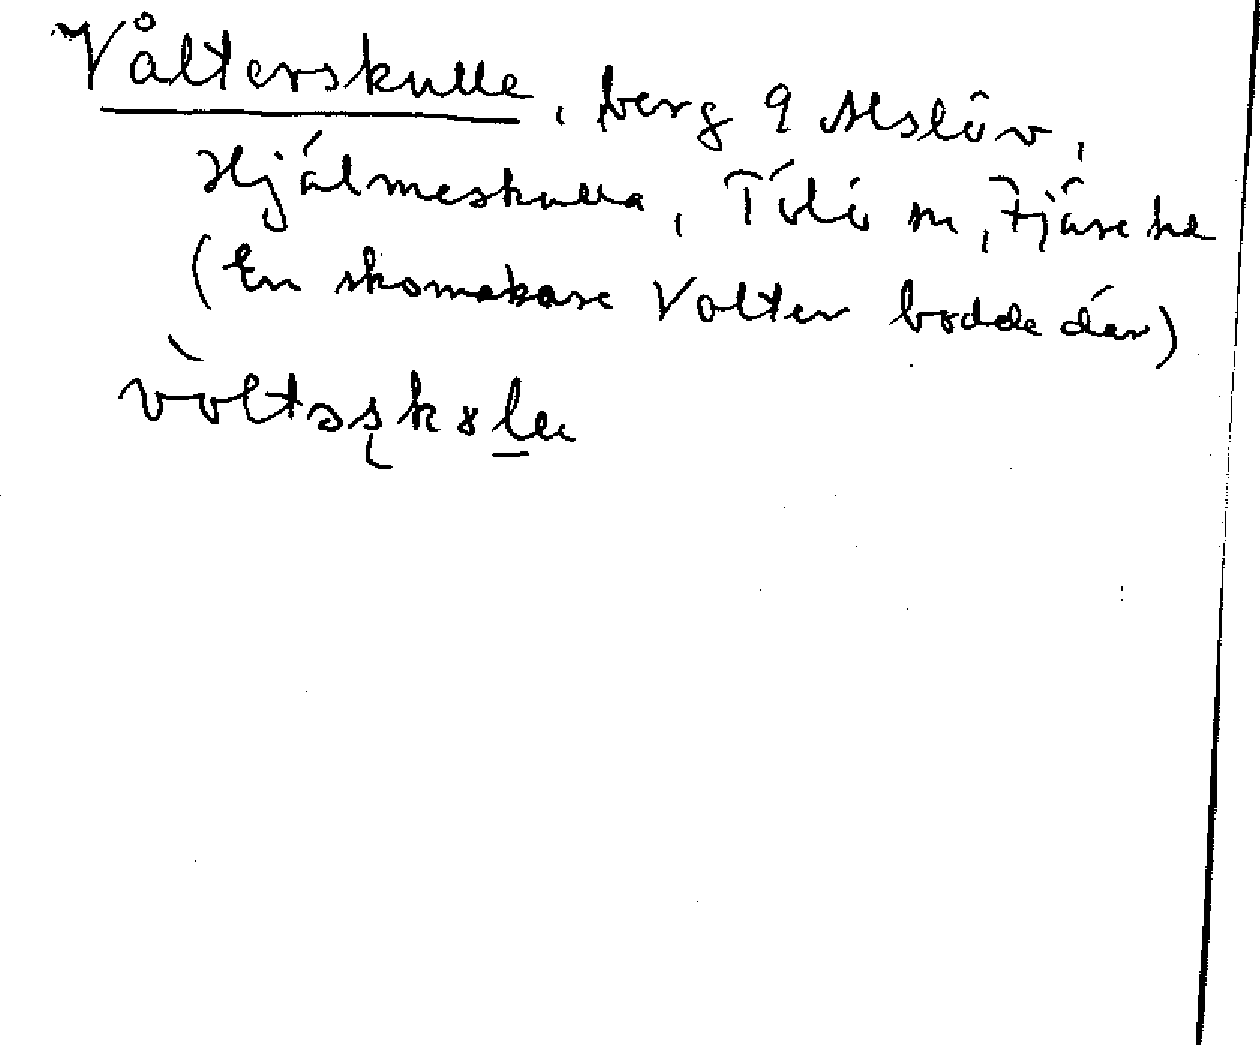 Vålterskulle, berg 9 Alslöv,
Hjälmeskulla, Tölö sn, Fjäre hd
(En skomakare Volter bodde där)
vòltəşkɤlɐ